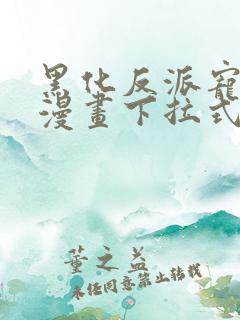 黑化反派寵
漫畫下拉式
董之益
未经同意禁止转载